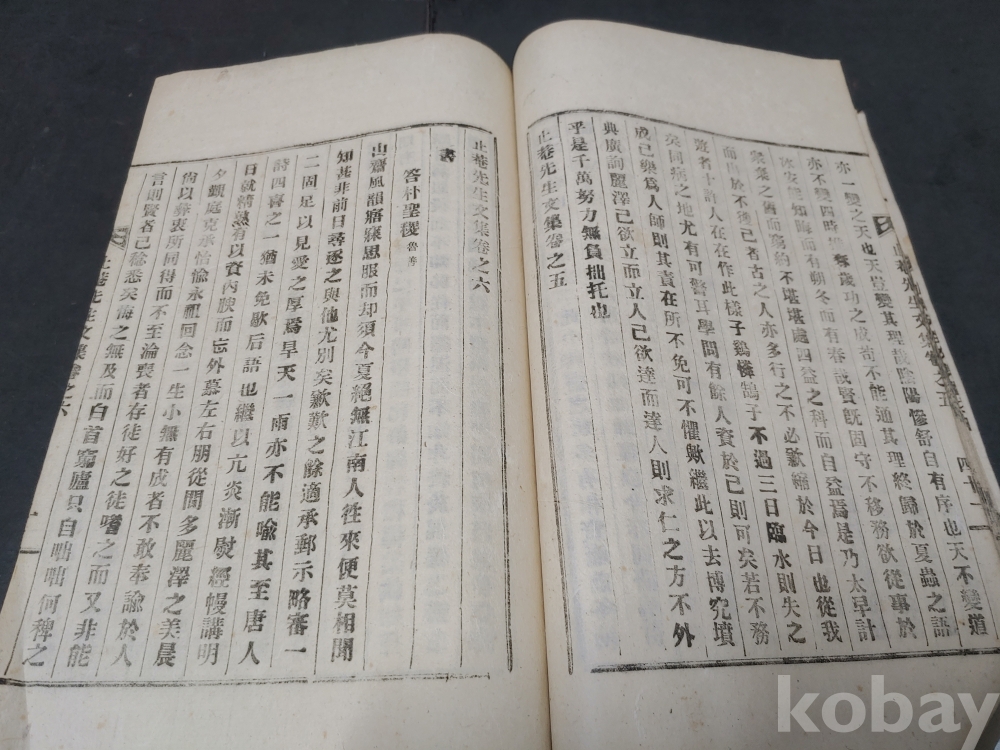 亦一變之天也天豈變其聖哉陰陽慘舒自有序也天不變道
亦不變四時歲功之成苟不能通其理終歸於夏蟲之語
知晦而有朔冬而有春說賢旣固守不移務欲從事於
窮約不堪堪處四益之科而自益焉是乃太早計
而出於不後已者古之人亦多行之不必歉縮於今日也從我
遊者十許人在在作此樣子鷄憐鵠子不過三日臨水則失之
矣同病之地尤有可警耳學問有餘人資於己則可矣若不務
成己樂爲人師則其責在所不免可不懼歟繼此以去博究墳
典廣詢麗澤己欲立而立人己欲達而達人則求仁之方不外
乎是千萬努力無負拙托也
止菴先生文集卷之五
四十一
止菴先生文集卷之六
書
答朴聖稷
山齋風韻寤寐思服而却須今夏絕無江南人往來便莫相聞
知甚非前日尋逐之與他尤別矣歉歎之餘適承郵示略審一
二固足以見愛之厚焉旱天一雨亦不能喩其至唐人
詩四喜之一猶未免歇后語也繼以亢炎漸熨經幔講明
日就精熟有以資內腴而忘外慕左右朋從間多麗澤之美晨
夕觀庭克承怡愉永 回念一生小無有成者不敢奉諭於人
尙以彛衷所同得而不至淪喪者存徒好之徒嗜之而又非能
言則賢者已稔悉矣悔之無及而白首窮廬只自咄咄何稗之
止菴先生文集卷之六
一
kobay